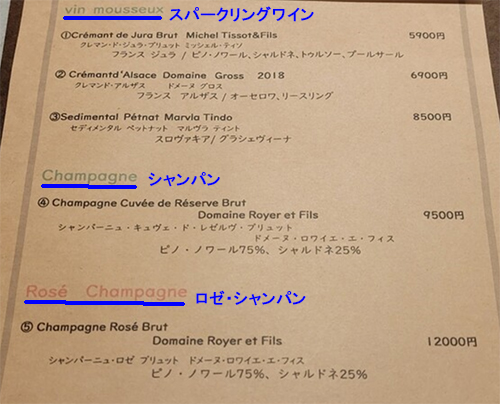 vin mousseux スパークリングワイン
①Crémant de Jura Brut Michel Tissot&Fils 5900円
クレマン・ド・ジュラ・ブリュット ミッシェル・ティソ
フランス ジュラ / ピノ・ノワール、シャルドネ、トゥルソー、プールサール
② Crémantd'Alsace Domaine Gross 2018 6900円
クレマンド・アルザス ドメーヌ グロス
フランス アルザス / オーセロワ、リースリング
③Sedimental Pétnat Marvla Tindo 8500円
セディメンタル ペットナット マルヴラ ティント
スロヴァキア/ グラシェヴィーナ
Champagne シャンパン
④ Champagne Cuvée de Réserve Brut
Domaine Royer et Fils 9500円
シャンパーニュ・キュヴェ・ド・レゼルヴ・ブリュット
ドメーヌ・ロワイエ・エ・フィス
ピノ・ノワール75%、シャルドネ25%
Rosé Champagne ロゼ・シャンパン
⑤ Champagne Rosé Brut
Domaine Royer et Fils 12000円
シャンパーニュ・ロゼ ブリュット ドメーヌ・ロワイエ・エ・フィス
ピノ・ノワール75%、シャルドネ25%